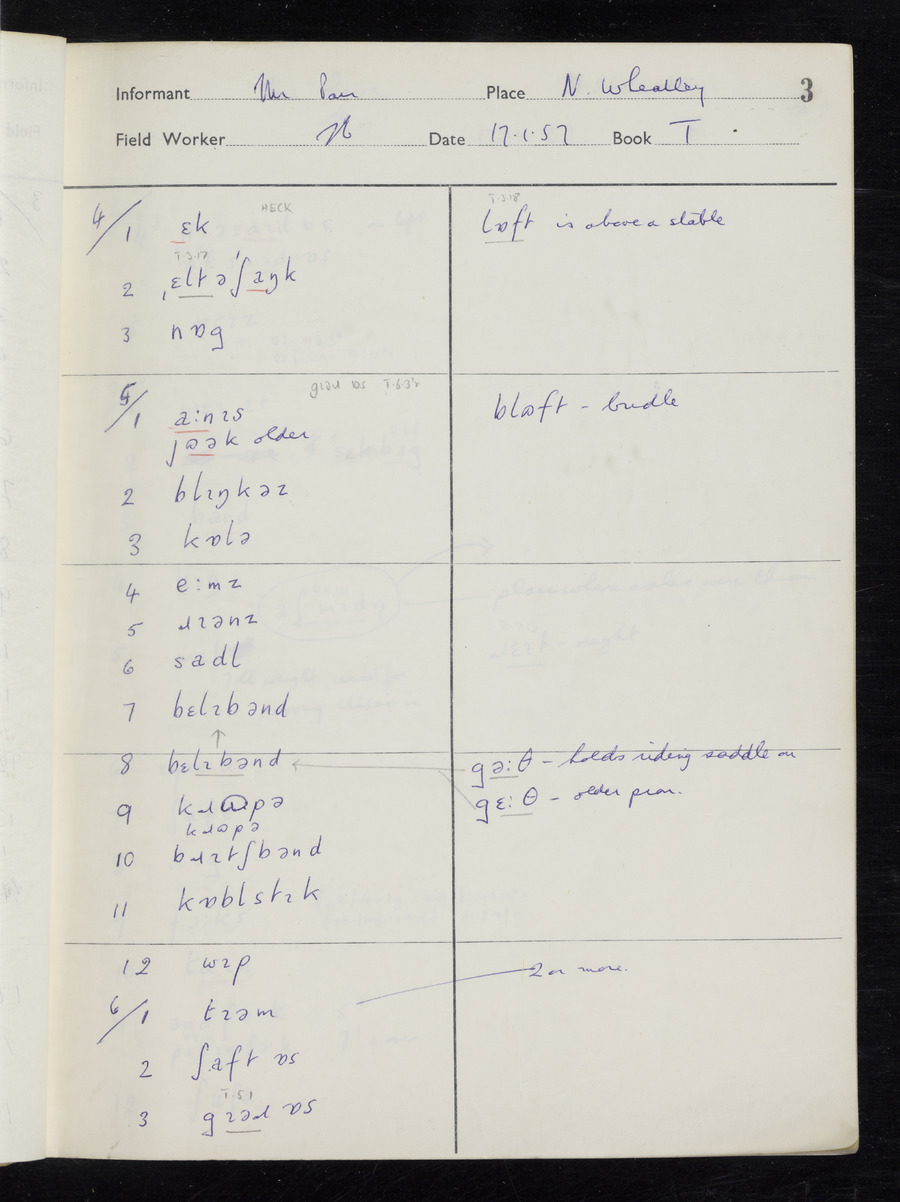 Informant Mr Parr Place N. Wheatley 3
Field Worker Date 17.1.57 Book I
HECK
4/1 ɛk
I.3.18
lɒft is above a stable
I.3.17
2 ˌɛltəˈʃaŋk
3 nag
I.6.3
5/1 a:nɪs
ʃaək older
blɒft - bridle
2 blɪŋkəz
3 kɒlə
4 e:mz
5 ɹɪənz
6 sadl
7 bɛlɪbənd
↑
8 bɛlɪbənd
gə:θ - holds riding saddle on
gɛ:θ - older pron.
9 kɹʊpə
kɹɒpə
10 bɹɪtʃbənd
11 kɒblstɪk
12 wɪp
2 or more.
6/1 tɪəm
2 ʃaft ɒs
I.5.1
3 gɪəɹ ɒs